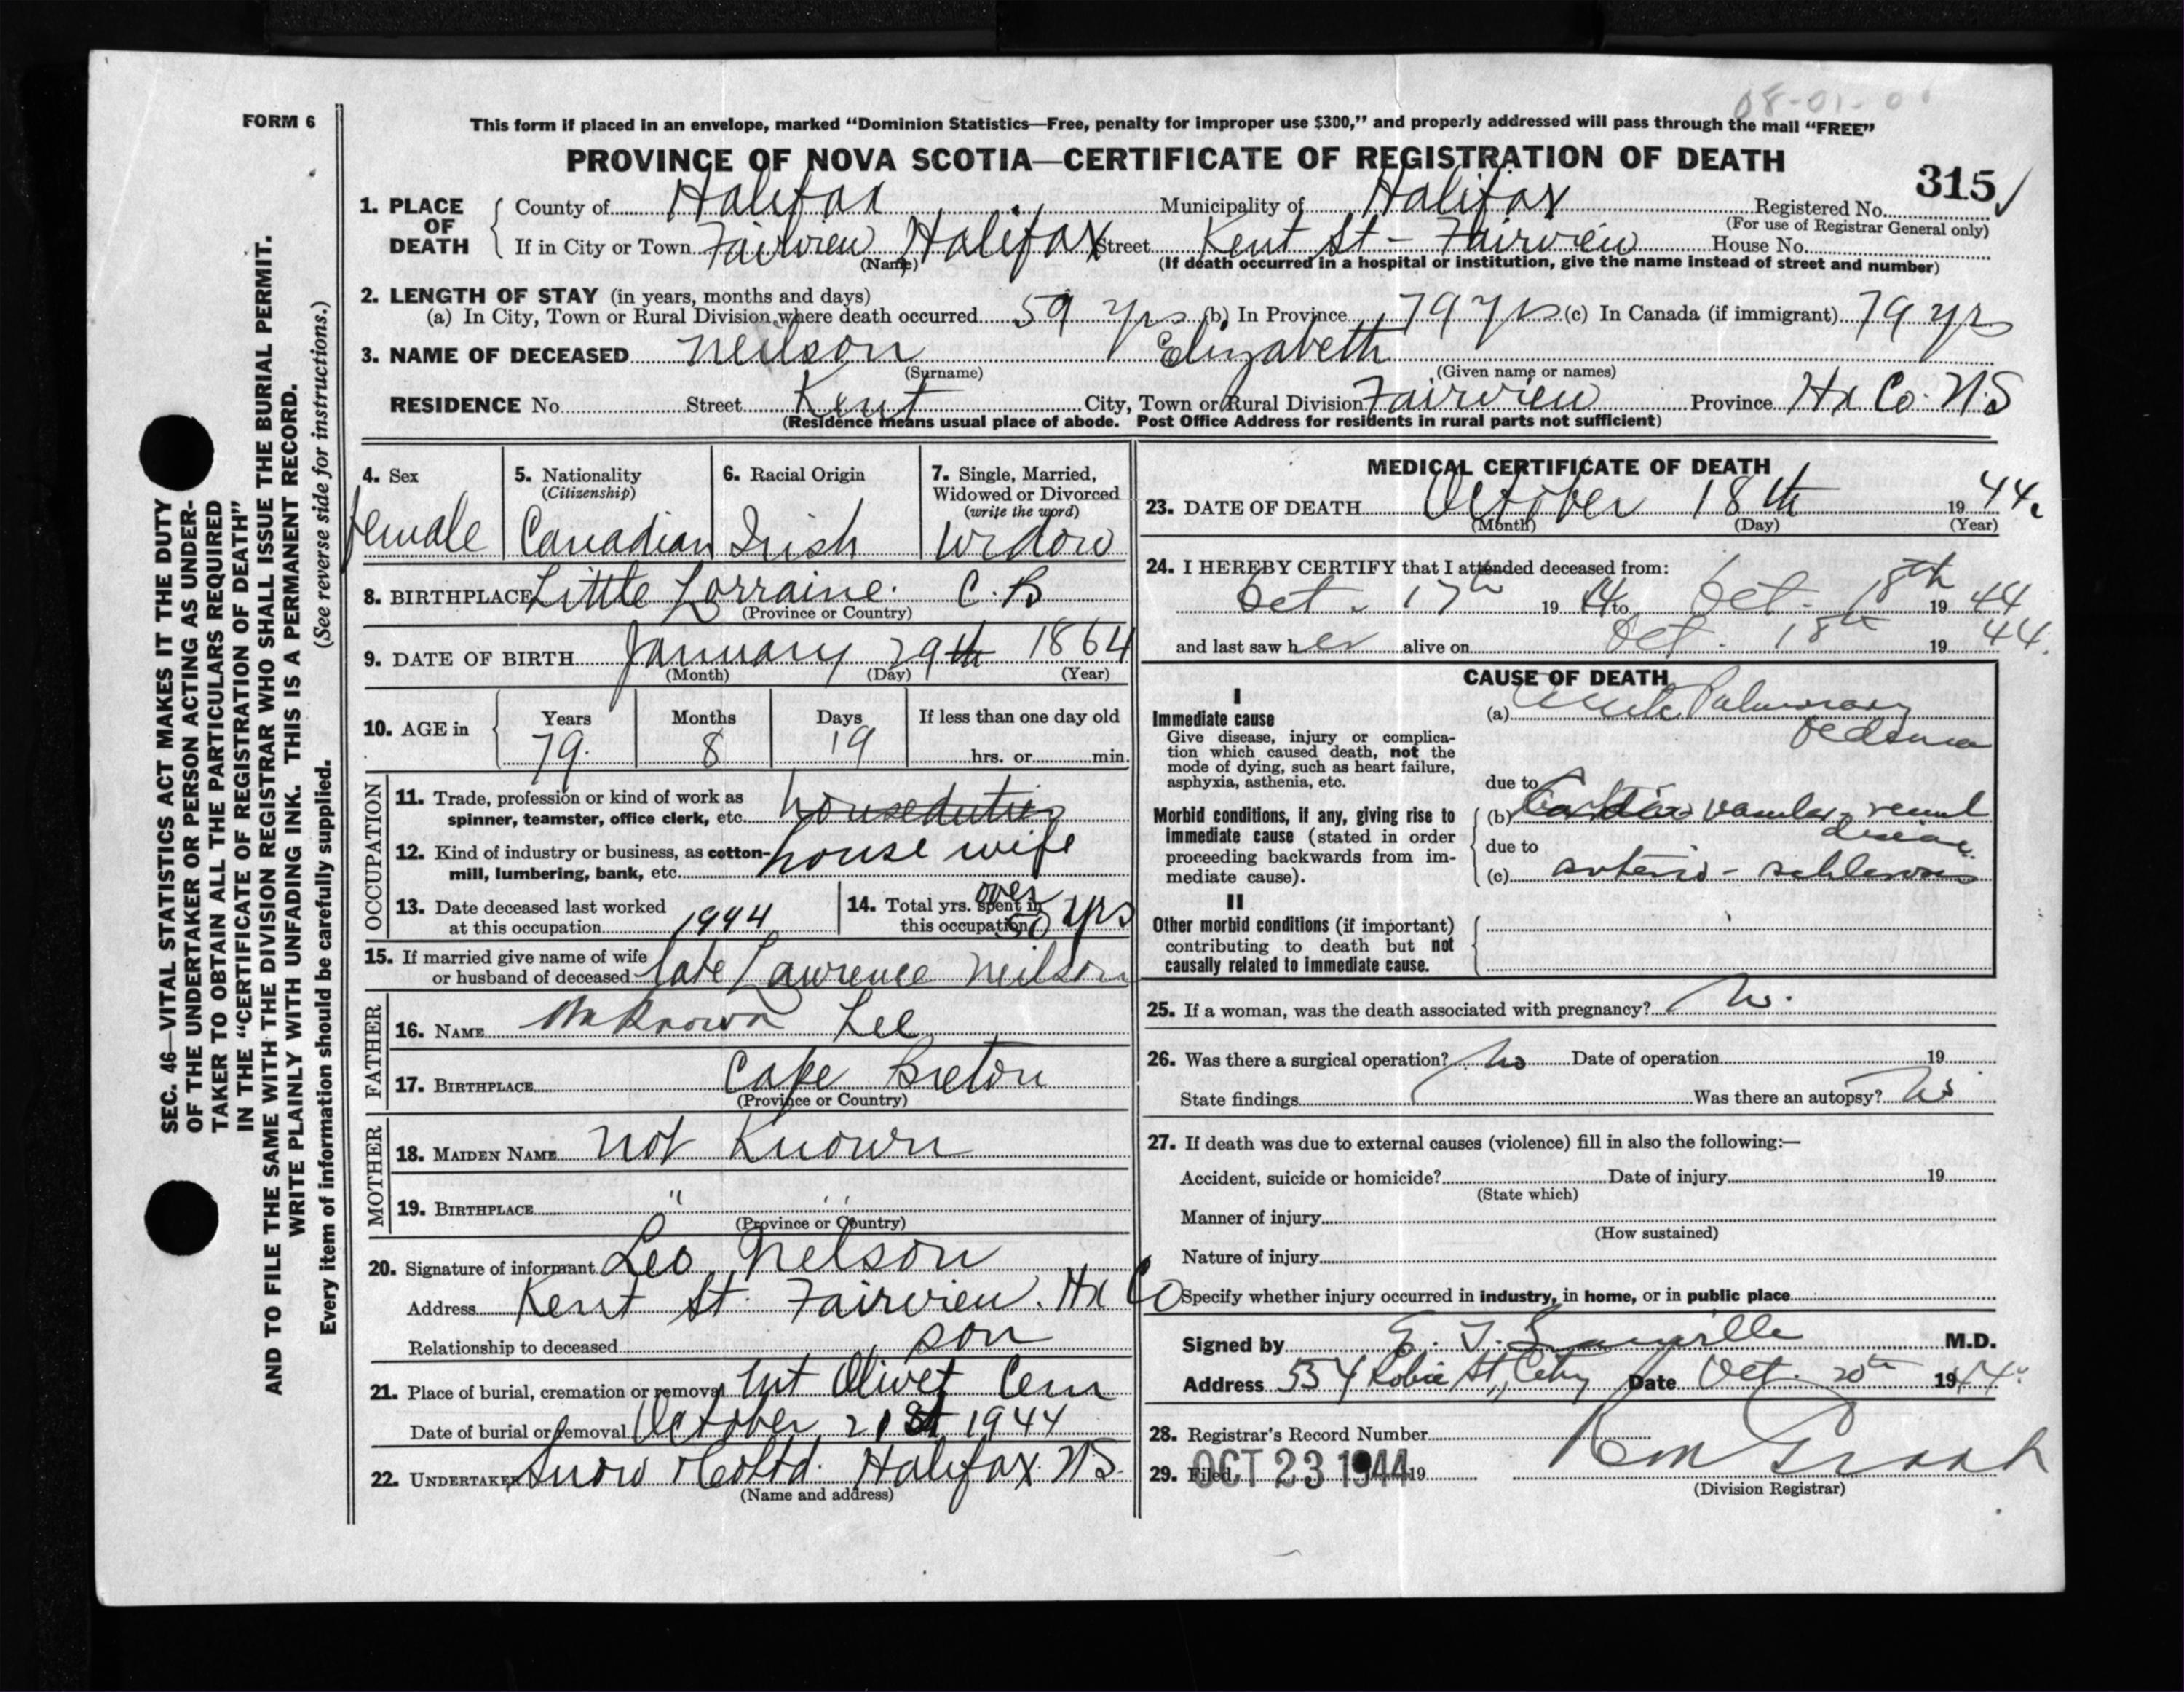 08-01-0
FORM 6
This form if placed in an envelope, marked “Dominion Statistics—Free, penalty for improper use $300,” and properly addressed will pass through the mail “FREE”
PROVINCE OF NOVA SCOTIA—CERTIFICATE OF REGISTRATION OF DEATH
315 ✓
1. PLACE OF DEATH County of Halifax Municipality of Halifax Registered No.
(For use of Registrar General only)
If in City or Town Fairview Halifax Street Kent St - Fairview House No.
(Name) (If death occurred in a hospital or institution, give the name instead of street and number)
2. LENGTH OF STAY (in years, months and days)
(a) In City, Town or Rural Division where death occurred 59 yrs (b) In Province 79 yrs (c) In Canada (if immigrant) 79 yrs
3. NAME OF DECEASED Neilson Elizabeth
(Surname) (Given name or names)
RESIDENCE No. Street Kent City, Town or Rural Division Fairview Province Hx Co. N.S
(Residence means usual place of abode. Post Office Address for residents in rural parts not sufficient)
4. Sex 5. Nationality 6. Racial Origin 7. Single, Married,
(Citizenship) Widowed or Divorced
(write the word)
female Canadian Irish Widow
8. BIRTHPLACE Little Lorraine. C.B
(Province or Country)
9. DATE OF BIRTH January 29th 1864
(Month) (Day) (Year)
10. AGE in Years Months Days If less than one day old
79 8 19 hrs. or min.
OCCUPATION
11. Trade, profession or kind of work as
spinner, teamster, office clerk, etc. house duties
12. Kind of industry or business, as cotton-
mill, lumbering, bank, etc. house wife
13. Date deceased last worked
at this occupation 1944
14. Total yrs. spent in
this occupation over 50 yrs
15. If married give name of wife
or husband of deceased late Lawrence Neilson
FATHER
16. NAME Unknown Lee
17. BIRTHPLACE Cape Breton
(Province or Country)
MOTHER
18. MAIDEN NAME not Known
19. BIRTHPLACE " "
(Province or Country)
20. Signature of informant Leo Nelson
Address Kent St. Fairview. Hx Co
Relationship to deceased son
21. Place of burial, cremation or removal Mt Olivet Cem
Date of burial or removal October 21st 1944
22. UNDERTAKER Snow & Co Ltd. Halifax N.S.
(Name and address)
MEDICAL CERTIFICATE OF DEATH
23. DATE OF DEATH October 18th 1944.
(Month) (Day) (Year)
24. I HEREBY CERTIFY that I attended deceased from:
Oct. 17th 1944 to Oct. 18th 1944
and last saw her alive on Oct. 18th 1944.
CAUSE OF DEATH
I
Immediate cause
Give disease, injury or complica-
tion which caused death, not the
mode of dying, such as heart failure,
asphyxia, asthenia, etc.
(a) Acute Pulmonary
oedema
due to
Morbid conditions, if any, giving rise to
immediate cause (stated in order
proceeding backwards from im-
mediate cause).
(b) Cardio vascular renal
disease.
due to
(c) arterio - schlerosis
II
Other morbid conditions (if important)
contributing to death but not
causally related to immediate cause.
25. If a woman, was the death associated with pregnancy? No.
26. Was there a surgical operation? No Date of operation 19
State findings Was there an autopsy? No
27. If death was due to external causes (violence) fill in also the following:—
Accident, suicide or homicide? Date of injury 19
(State which)
Manner of injury
(How sustained)
Nature of injury
Specify whether injury occurred in industry, in home, or in public place
Signed by E. T. M.D.
Address 554 Robie St., City Date Oct. 20th 1944.
28. Registrar's Record Number
29. Filed OCT 23 1944 19
(Division Registrar)
SEC. 46—VITAL STATISTICS ACT MAKES IT THE DUTY
OF THE UNDERTAKER OR PERSON ACTING AS UNDER-
TAKER TO OBTAIN ALL THE PARTICULARS REQUIRED
IN THE “CERTIFICATE OF REGISTRATION OF DEATH”
AND TO FILE THE SAME WITH THE DIVISION REGISTRAR WHO SHALL ISSUE THE BURIAL PERMIT.
WRITE PLAINLY WITH UNFADING INK. THIS IS A PERMANENT RECORD.
Every item of information should be carefully supplied. (See reverse side for instructions.)